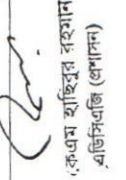 কেএম হাছিবুর রহমান
এডিসিএজি (প্রশাসন)